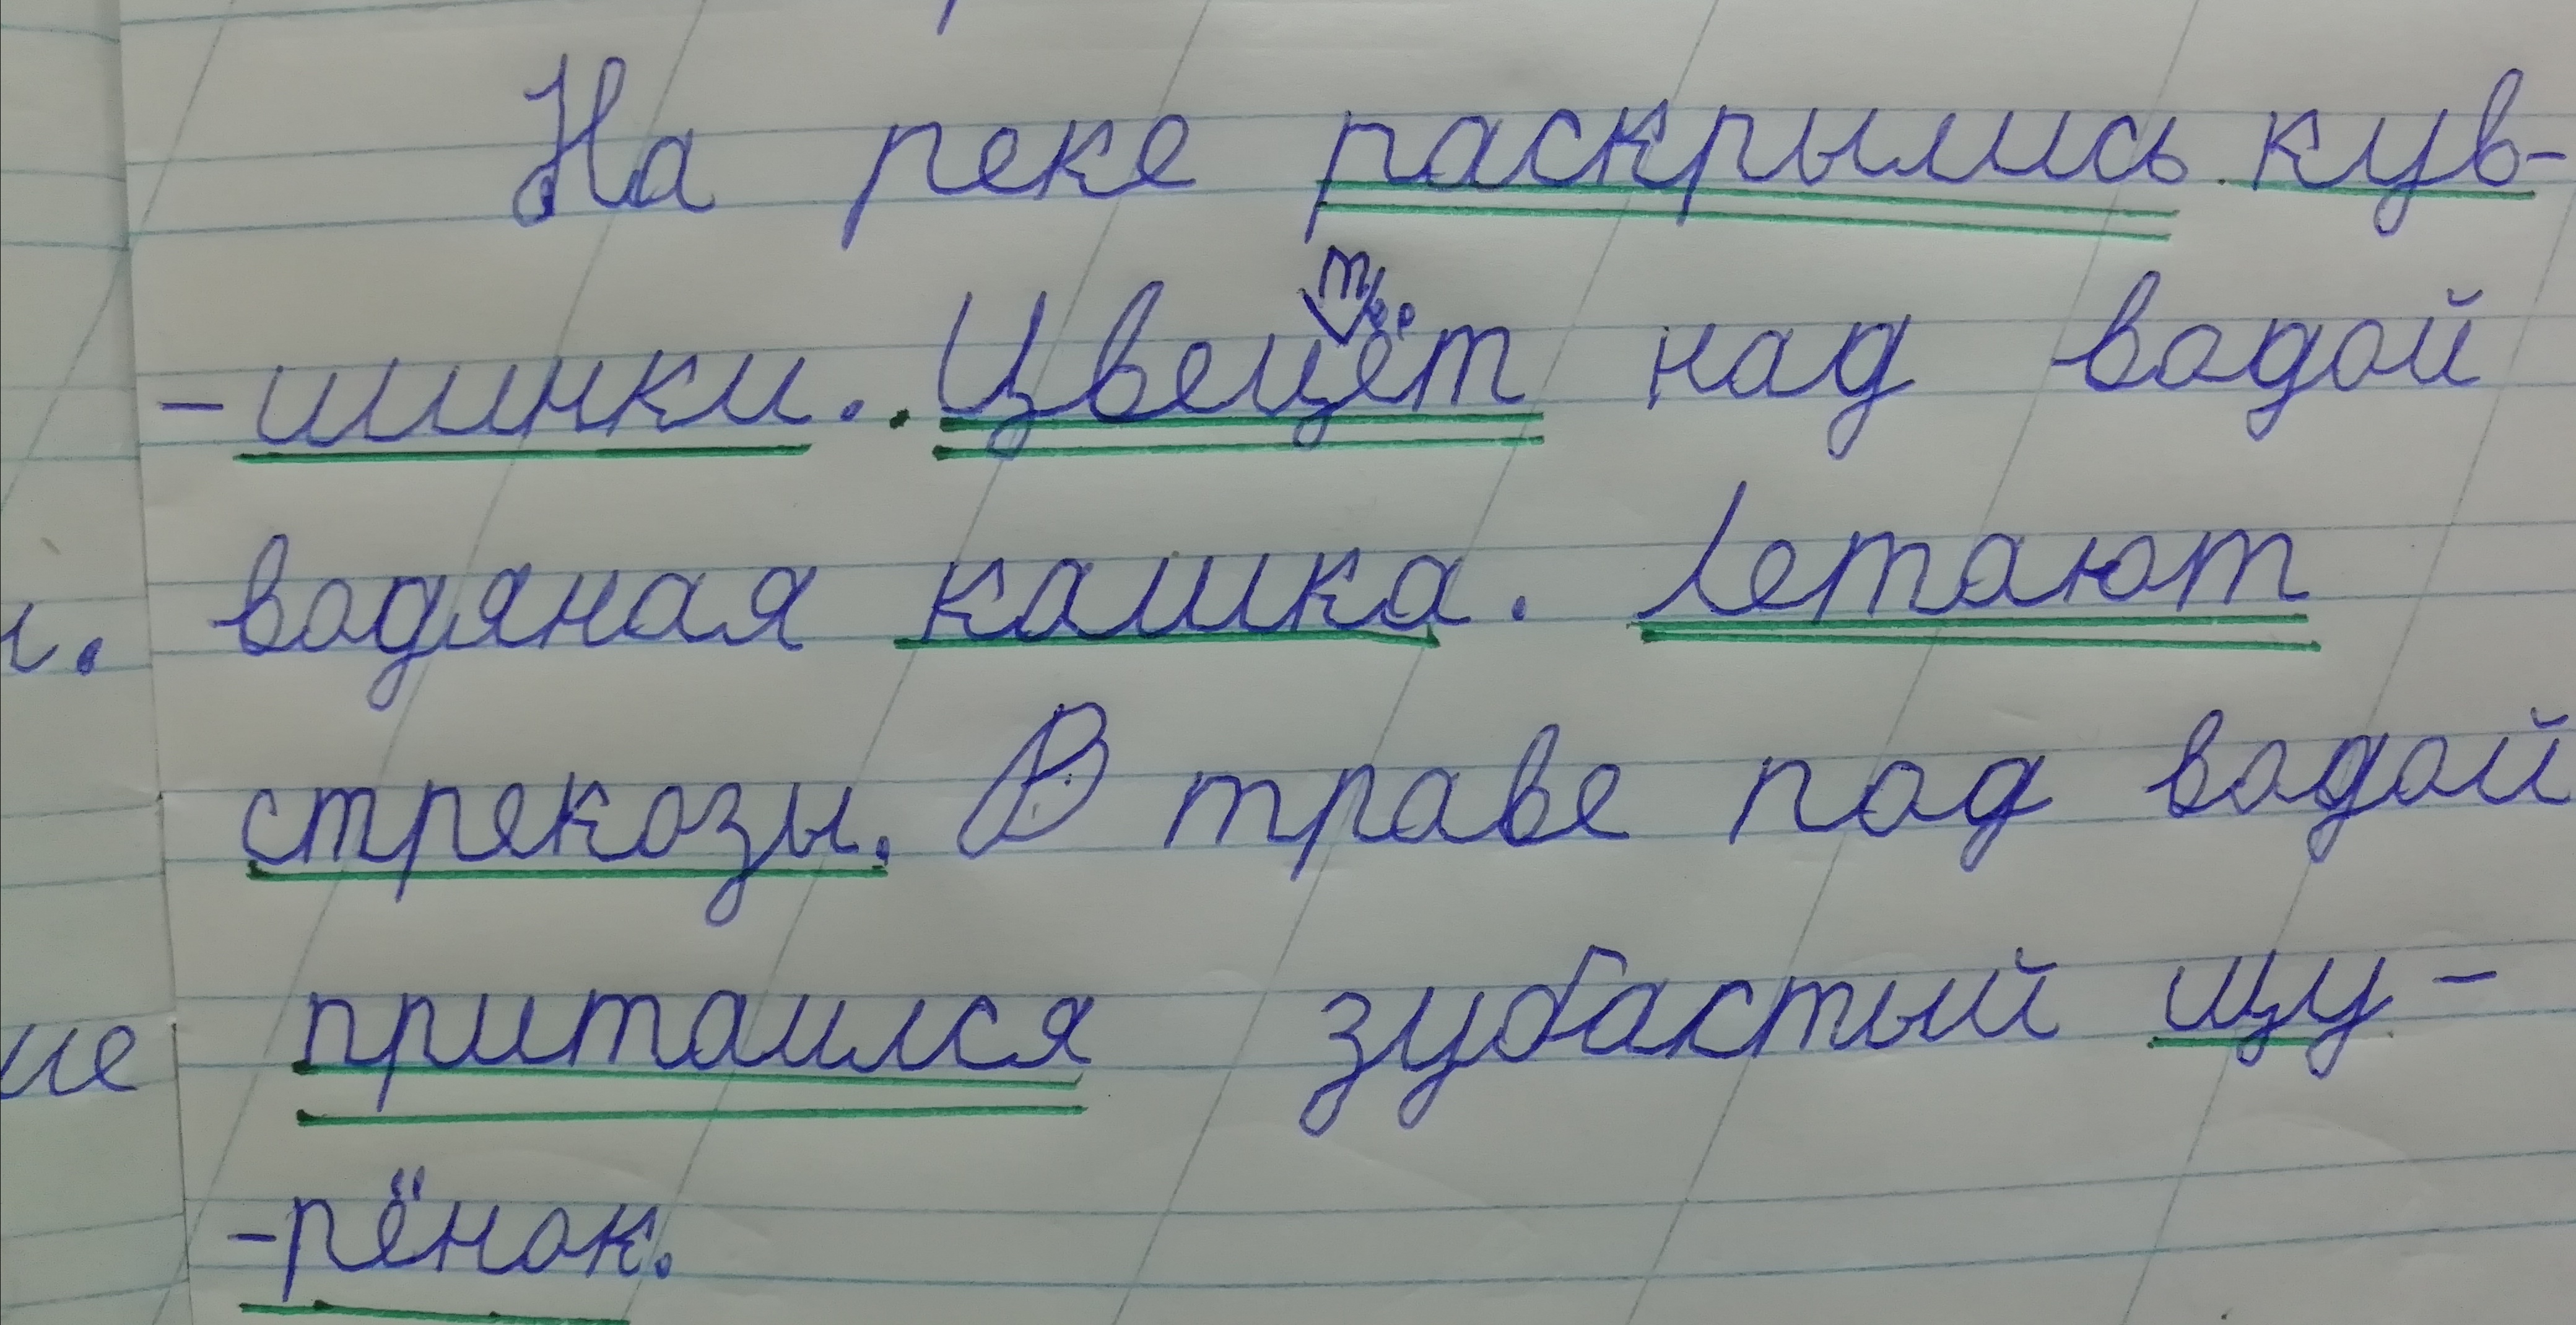 На реке раскрылись кув-
-шинки. Цвецёт над водой
т
водяная кашка. Летают
стрекозы. В траве под водой
притаился зубастый щу-
-рёнок.